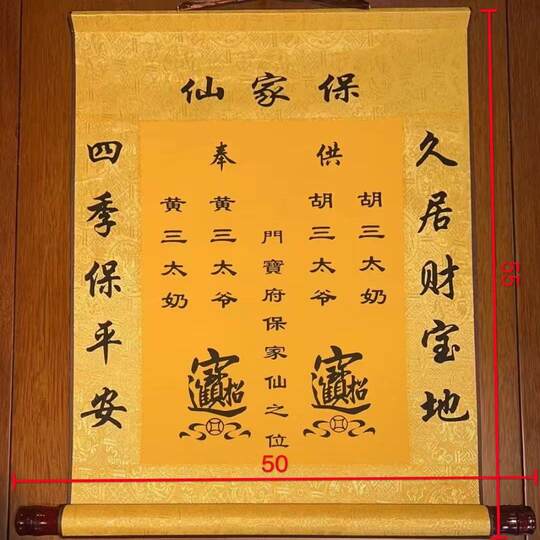 保家仙
久居财宝地
供奉
胡三太奶
胡三太爷
門寶府保家仙之位
黄三太爷
黄三太奶
招財進寶
招財進寶
四季保平安
55
50